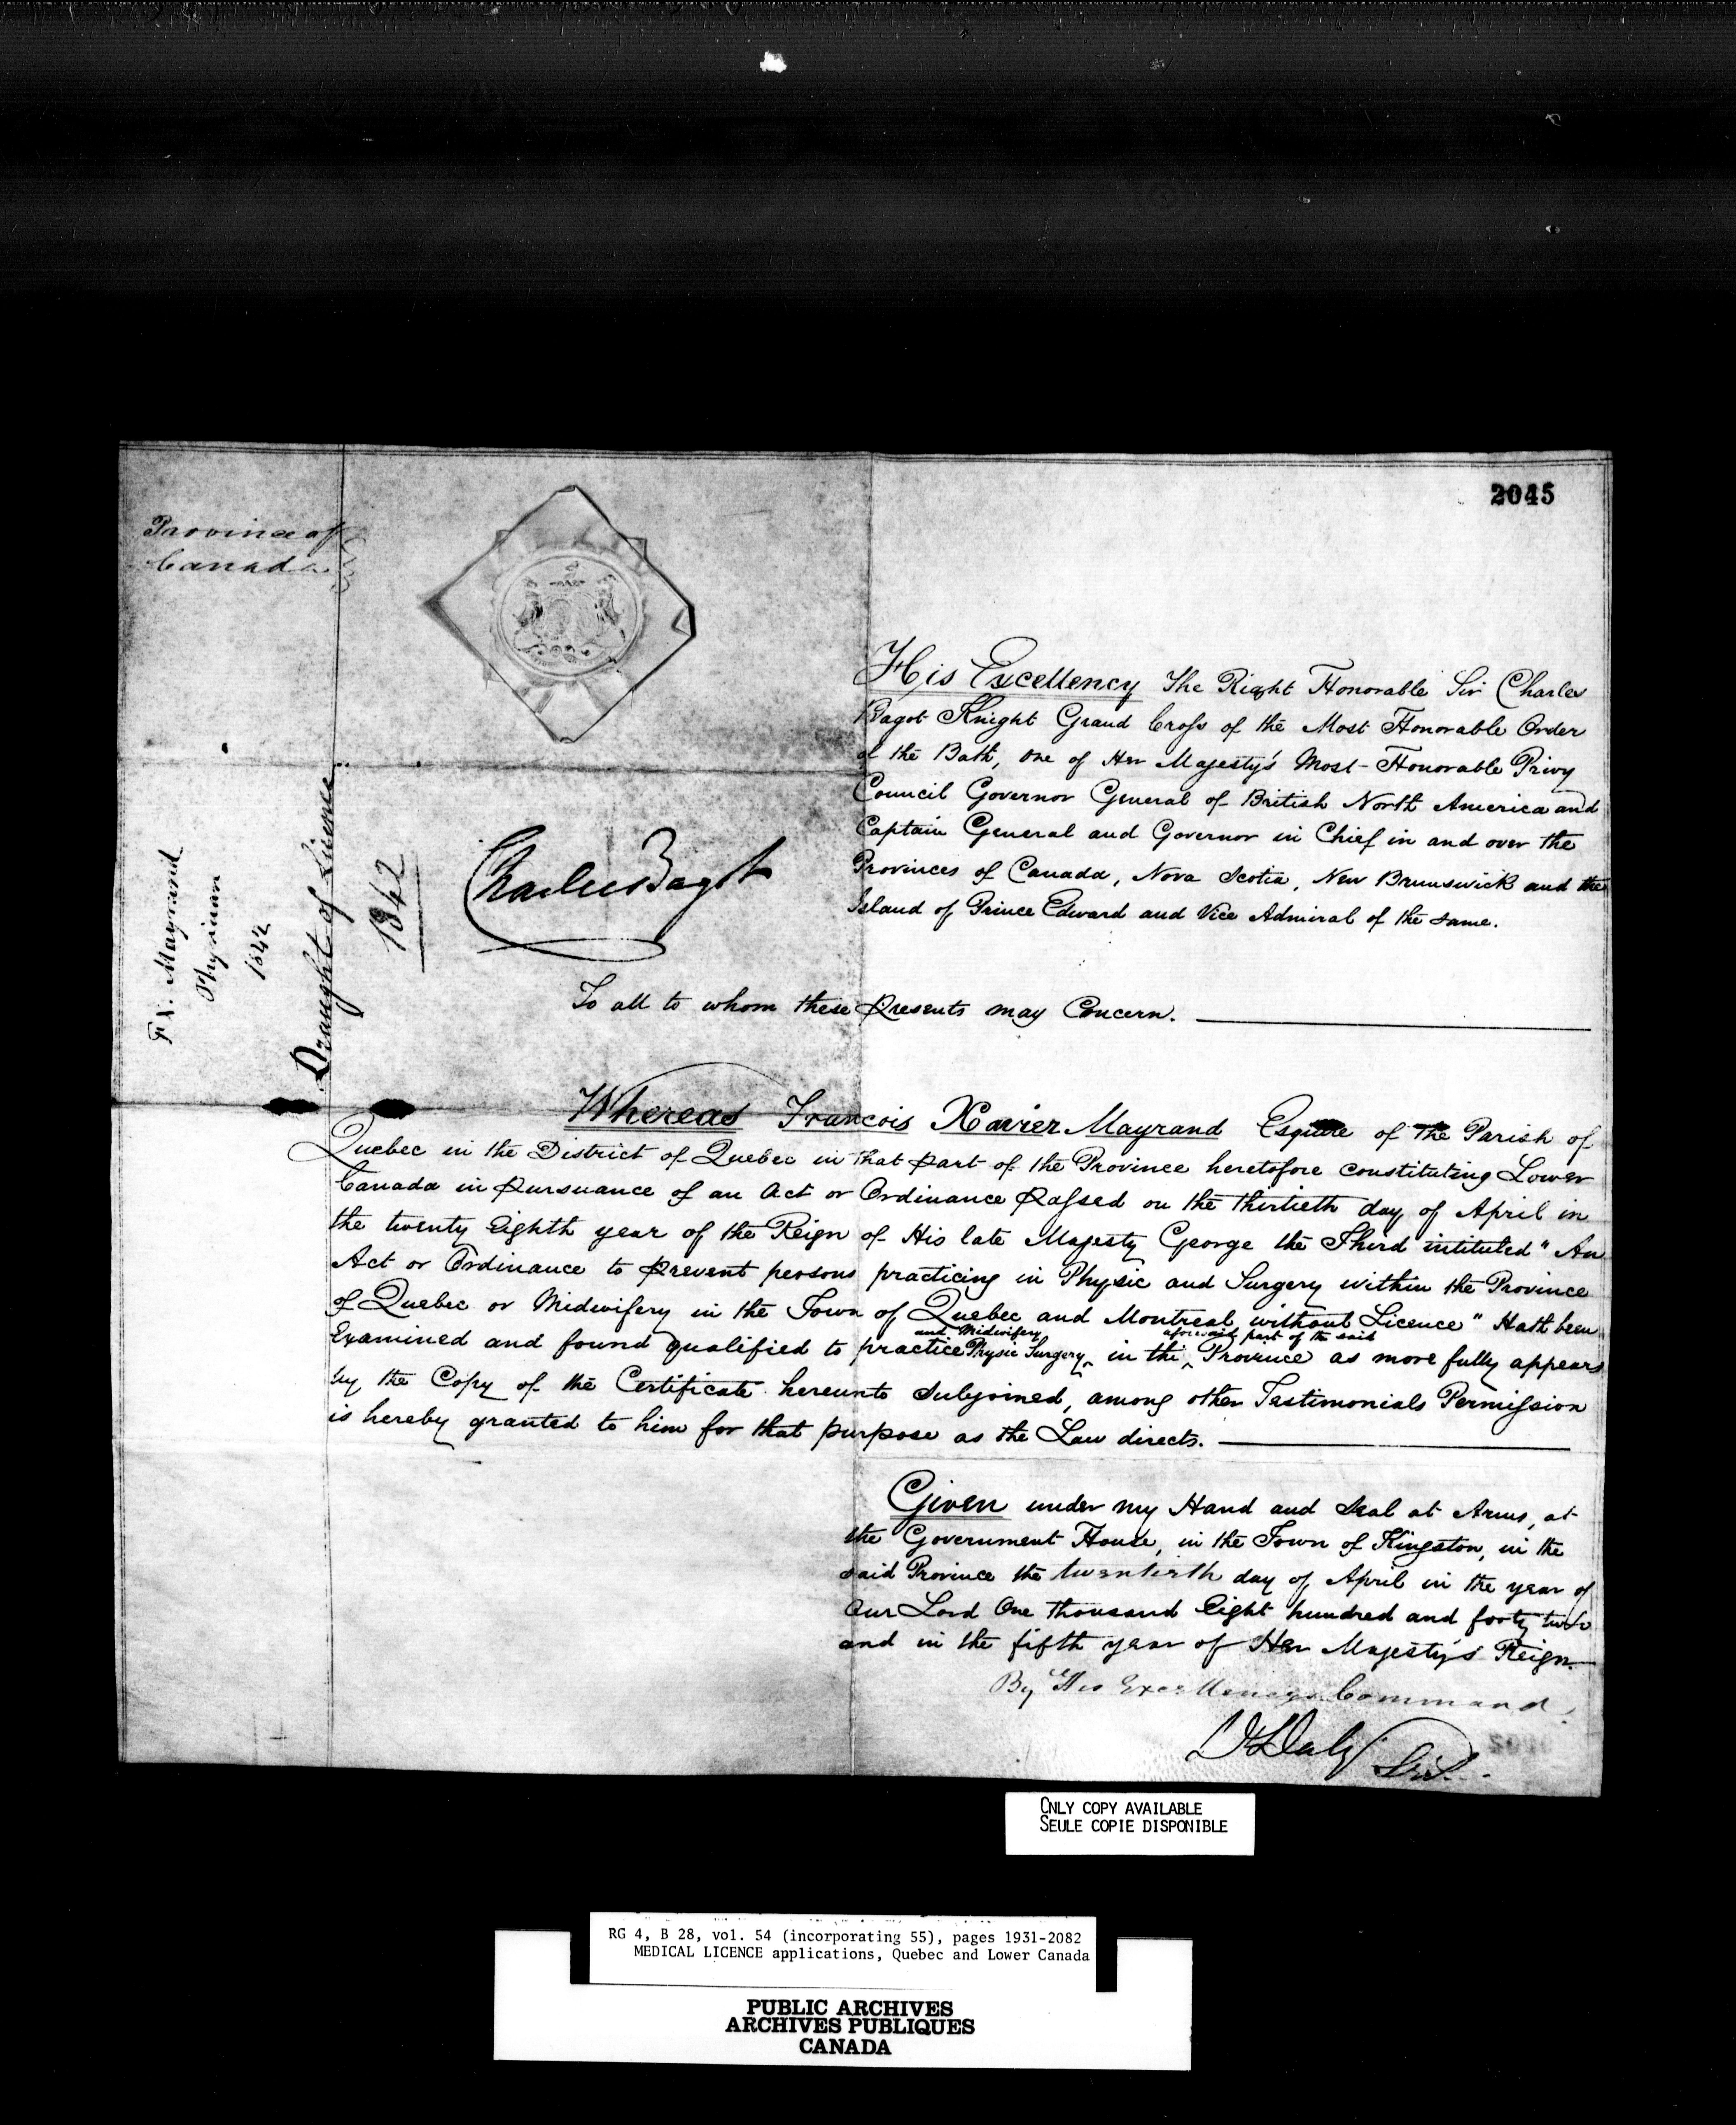 2045
Province of
Canada
F.X. Mayrand
Physician
1842
Draught of Licence
1842
Charles Bagot
His Excellency The Right Honorable Sir Charles
Bagot Knight Grand Cross of the Most Honorable Order
of the Bath, one of Her Majesty's Most Honorable Privy
Council Governor General of British North America and
Captain General and Governor in Chief in and over the
Provinces of Canada, Nova Scotia, New Brunswick and the
Island of Prince Edward and Vice Admiral of the same.
To all to whom these Presents may Concern.
Whereas Francois Xavier Mayrand Esquire of the Parish of
Quebec in the District of Quebec in that part of the Province heretofore constituting Lower
Canada in pursuance of an Act or Ordinance passed on the thirtieth day of April in
the twenty Eighth year of the Reign of His late Majesty George the Third intituled "An
Act or Ordinance to prevent persons practicing in Physic and Surgery within the Province
of Quebec or Midwifery in the Town of Quebec and Montreal without Licence" Hath been
and Midwifery aforesaid part of the said
Examined and found qualified to practice Physic Surgery ‸ in the ‸ Province as more fully appears
by the Copy of the Certificate hereunto subjoined, among other Testimonials Permission
is hereby granted to him for that purpose as the Law directs.
Given under my Hand and Seal at Arms, at
the Government House, in the Town of Kingston, in the
said Province the twentieth day of April in the year of
Our Lord One thousand Eight hundred and forty two
and in the fifth year of Her Majesty's Reign.
By His Excellency's Command.
D Daly
ONLY COPY AVAILABLE
SEULE COPIE DISPONIBLE
RG 4, B 28, vol. 54 (incorporating 55), pages 1931-2082
MEDICAL LICENCE applications, Quebec and Lower Canada
PUBLIC ARCHIVES
ARCHIVES PUBLIQUES
CANADA